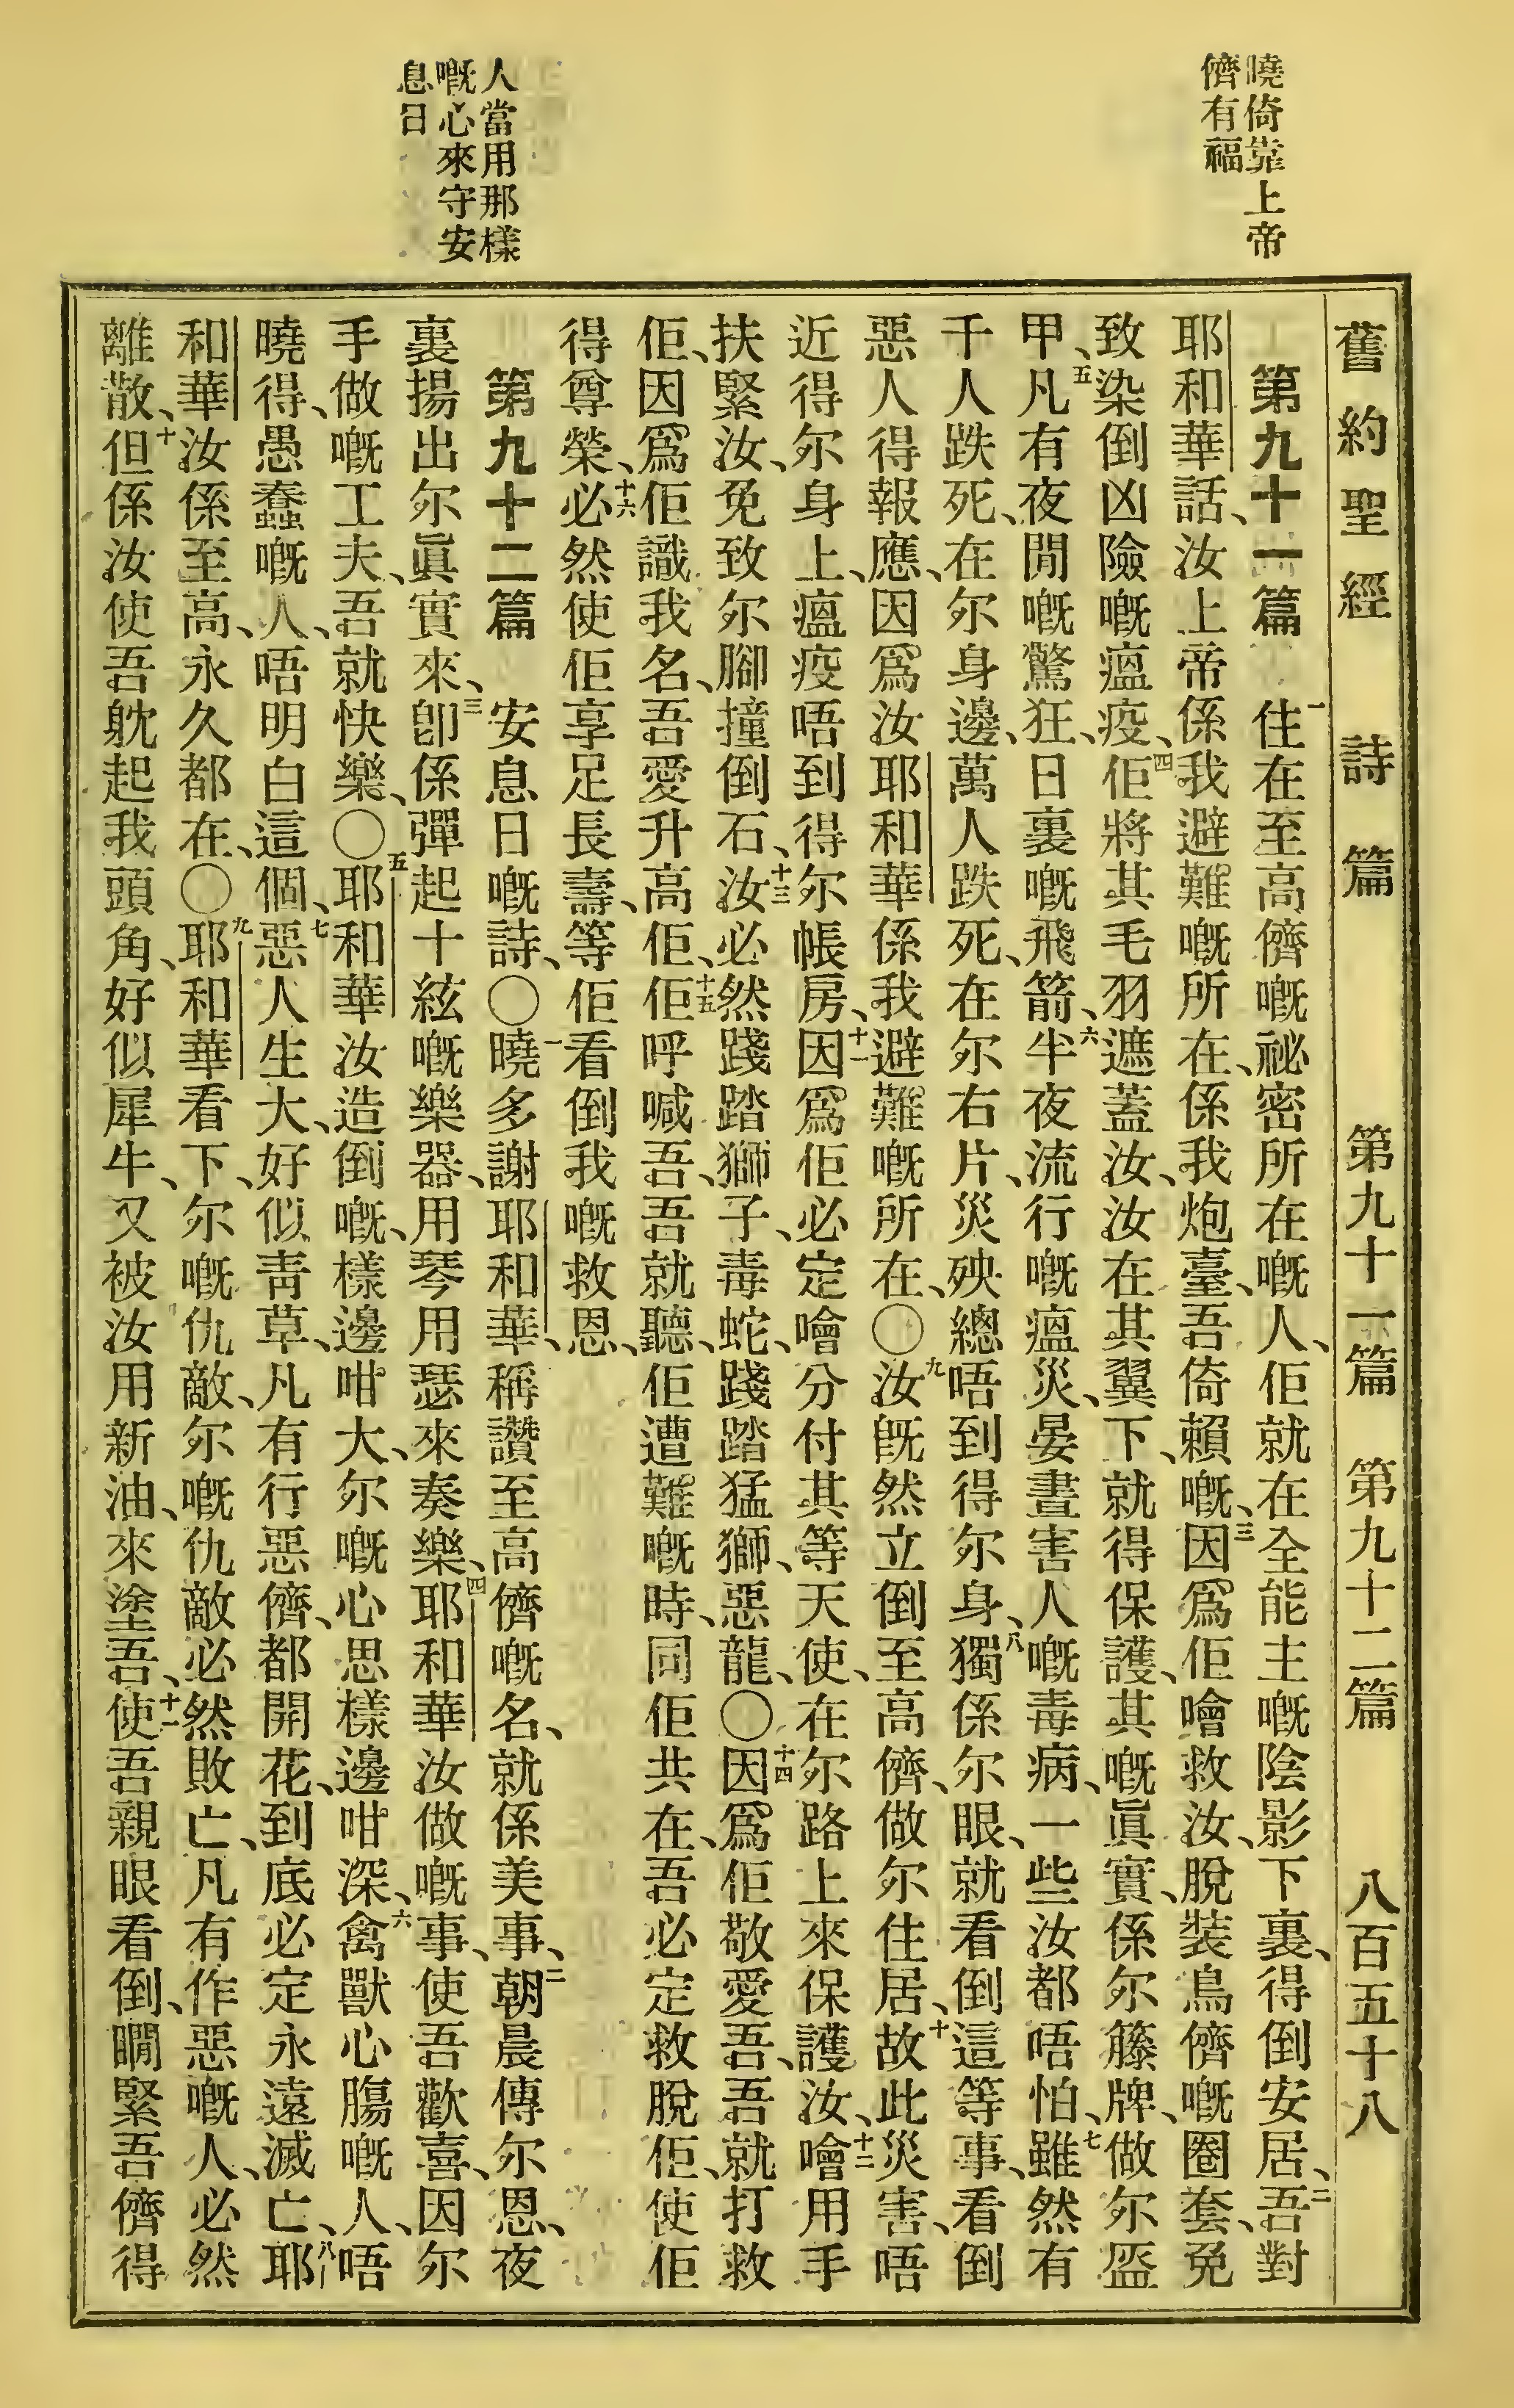 曉倚靠上帝
儕有福
人當用那樣
嘅心來守安
息日
舊約聖經　詩篇　第九十一篇　第九十二篇　八百五十八
第九十一篇　一住在至高儕嘅祕密所在嘅人、佢就在全能主嘅陰影下裏、得倒安居、二吾對
耶和華話、汝上帝係我避難嘅所在、係我炮臺、吾倚賴嘅、三因爲佢噲救汝、脫裝鳥儕嘅圈套、免
致染倒凶險嘅瘟疫、四佢將其毛羽遮蓋汝、汝在其翼下、就得保護、其嘅眞實、係尔籐牌、做尔盔
甲、五凡有夜間嘅驚狂、日裏嘅飛箭、六半夜流行嘅瘟災、晏晝害人嘅毒病、一些汝都唔怕、七雖然有
千人跌死、在尔身邊、萬人跌死、在尔右片、災殃總唔到得尔身、八獨係尔眼、就看倒這等事、看倒
惡人得報應、因爲汝耶和華係我避難嘅所在、〇九汝旣然立倒至高儕、做尔住居、十故此災害、唔
近得尔身上、瘟疫唔到得尔帳房、十一因爲佢必定噲分付其等天使、在尔路上來保護汝、十二噲用手
扶緊汝、免致尔腳撞倒石、十三汝必然踐踏獅子、毒蛇、踐踏猛獅、惡龍、〇十四因爲佢敬愛吾、吾就打救
佢、因爲佢識我名、吾愛升高佢、十五佢呼喊吾、吾就聽、佢遭難嘅時、同佢共在、吾必定救脫佢、使佢
得尊榮、十六必然使佢享足長壽、等佢看倒我嘅救恩、
第九十二篇　安息日嘅詩、〇一曉多謝耶和華、稱讚至高儕嘅名、就係美事、二朝晨傳尔恩、夜
裏揚出尔眞實來、三卽係彈起十絃嘅樂器、用琴用瑟來奏樂、四耶和華汝做嘅事、使吾歡喜、因尔
手做嘅工夫、吾就快樂、〇五耶和華汝造倒嘅、樣邊咁大、尔嘅心思樣邊咁深、六禽獸心腸嘅人、唔
曉得、愚蠢嘅人、唔明白這個、七惡人生大、好似靑草、凡有行惡儕、都開花、到底必定永遠滅亡、八耶
和華汝係至高、永久都在、〇九耶和華看下、尔嘅仇敵、尔嘅仇敵必然敗亡、凡有作惡嘅人、必然
離散、十但係汝使吾躭起我頭角、好似犀牛、又被汝用新油、來塗吾、十一使吾親眼看倒、瞯緊吾儕得